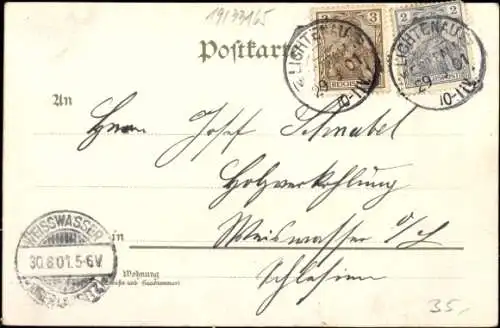 19133165
Postkarte
3 3
REICHSPOST
2 2
REICHSPOST
LICHTENAU
29
01
10-11V
LICHTENAU
29
01
10-11V
An
Herrn Josef Schnabel
Holzverkohlung
in Weisswasser o/L
Schlesien
Wohnung
(Straße und Hausnummer)
WEISSWASSER
30.8.01.5-6V
35,-